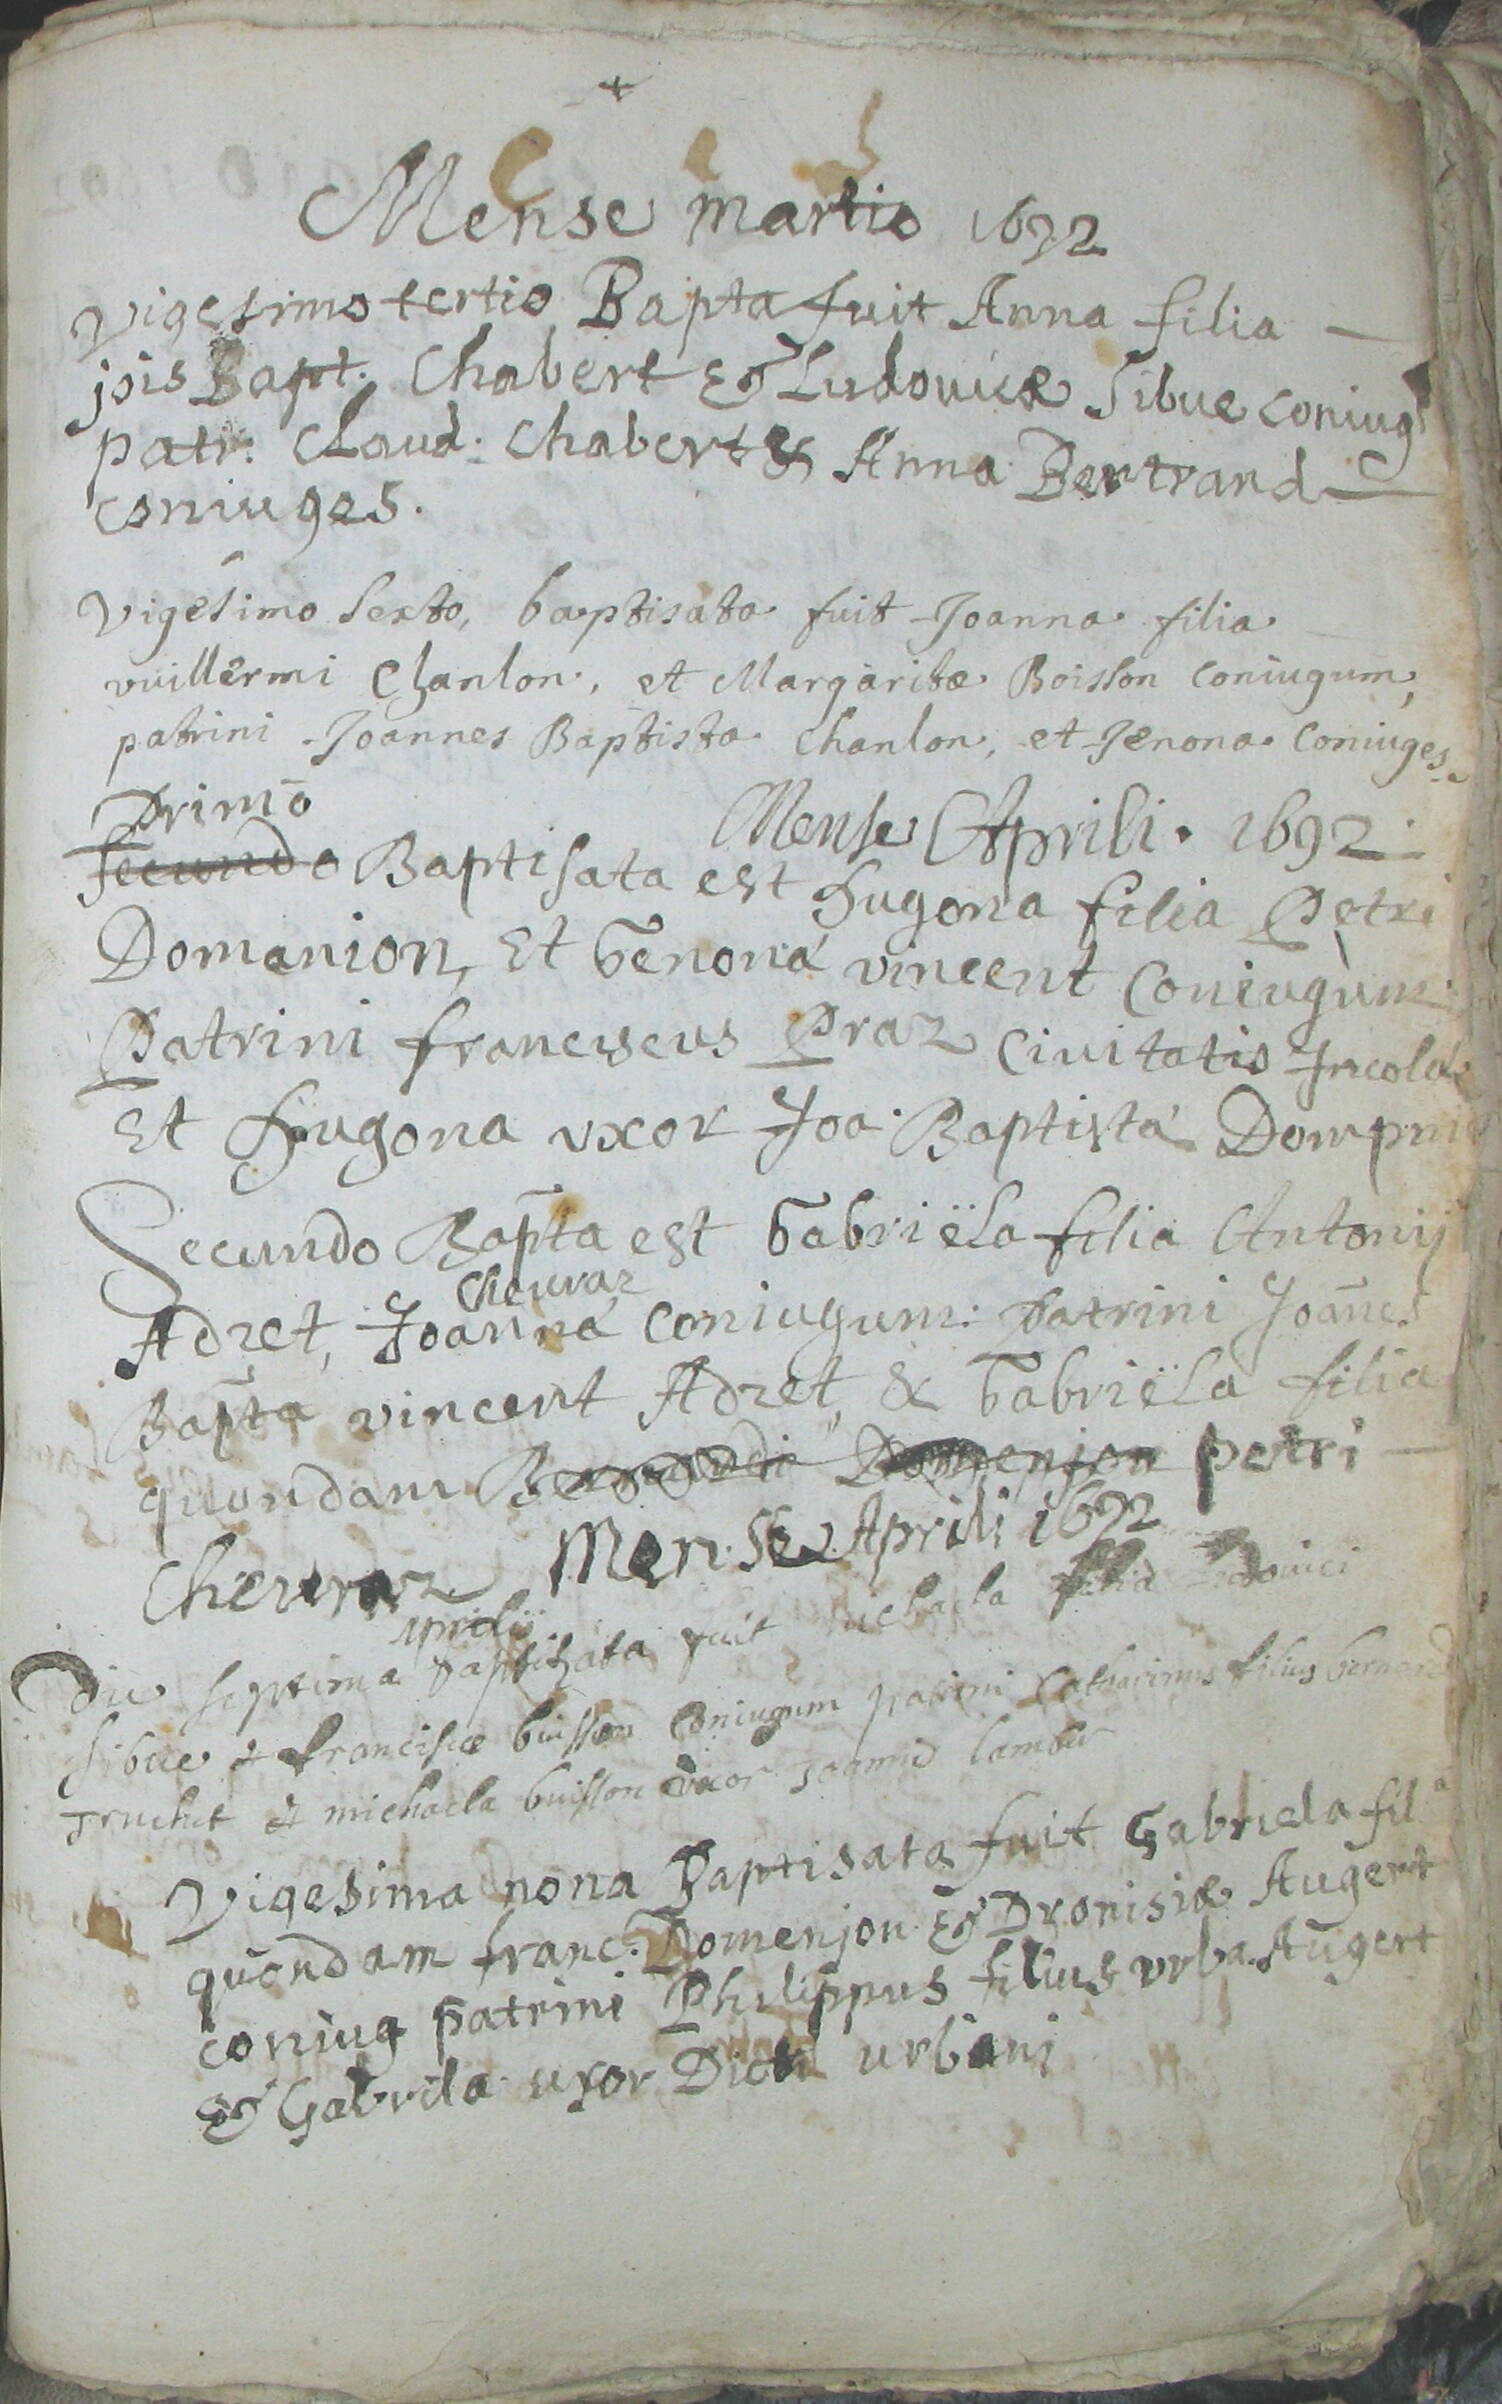 Mense martio 1692
Vigesimo tertio Bapta fuit Anna filia
jois Bapt. Chabert & Ludovicæ Sibue coniug
patr. Claud. Chabert & Anna Bertrand
coniuges.
Vigesimo Sexto, baptisata fuit Joanna filia
vuillermi Chanlon, et Margaritæ Boisson coniugum,
patrini Joannes Baptista Chanlon, et Jenona Coniuges
Mense Aprili. 1692.
Primo
Secundo Baptisata est hugona filia Petri
Domanion, Et Genona vincent Coniugum.
Patrini franciscus Praz Civitatis Incola
Et hugona vxor Joa. Baptista
Secundo Bapta est Gabriëla filia Antonij
Chevraz
Adret, Joanna coniugum: Patrini Joānes
Bapta vincent Adret, & Gabriëla filia
quondam Bernardi Domenjon petri
Chevraz Mense Aprili 1692
Aprilis
Die septima baptizata fuit michaela filia Ludovici
Sibue & franciscæ buisson Coniugum patrini Catharinus filius bernard
truchet & michaela buisson vxor Joannis lambert
Vigesima nona Baptisata fuit Gabriela fila
quondam franc. Domenjon & Dionisiæ Augert
coniug patrini Philippus filius vrba. Augert
& Gabrila uxor Dicti urbani